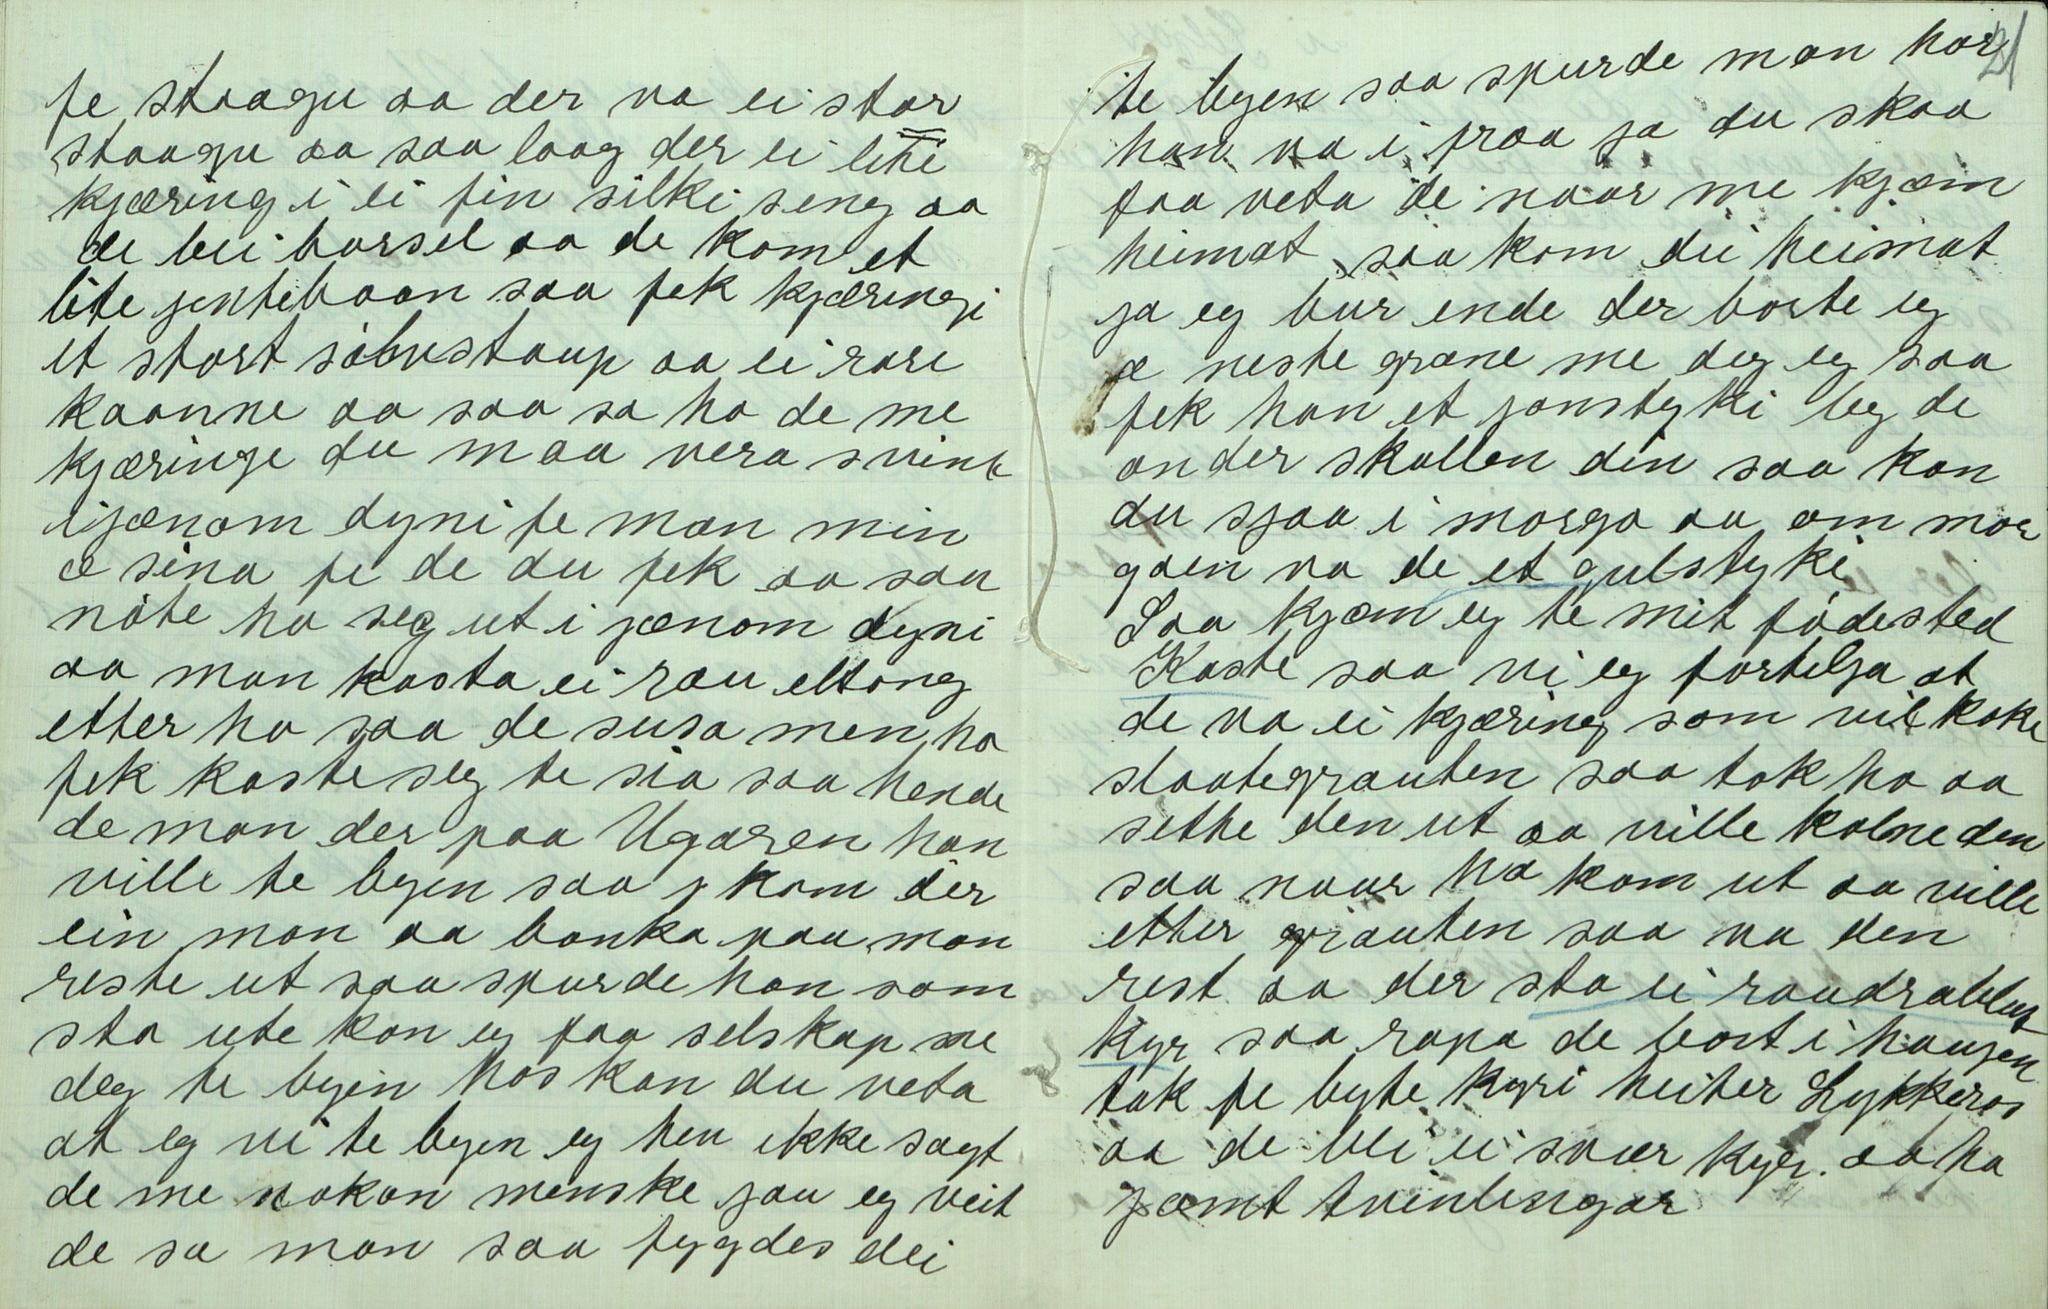 fe staagu aa der va ei stor
staagu aa saa laag der ei liti
kjæring i ei fin silki seng aa
de blei barsel aa de kom et
lite jentebaan saa fek kjæringi
et stort sòlvstaup aa ei rare
kaanne aa saa sa ho de me
kjæringe du maa vera svint
ijænom dyni fe man min
æ sina fe de du fek aa saa
nòte ho seg ut i jænom dyni
aa man kasta ei rau eltong
etter ho saa de susa men ho
fek kaste seg te sia saa hende
de man der paa Ugaren han
ville te byen saa kom der
ein man aa banka paa man
reste ut saa spurde han som
sto ute kan eg faa selskap me
deg te byen hos kan du veta
at eg vi te byen eg hev ikke sagt
de me nokon menske jau eg veit
de sa man saa fygdes dei
21
te byen saa spurde man hor
han va i fraa ja du skaa
faa veta de naar me kjæm
heimat saa kom dei heimat
ja eg bur ende der borte eg
æ neste græne me deg eg saa
fek han et jonstyki leg de
onder skallen din saa kan
du sjaa i morgo aa om mor
gaen va de et gulstyki
Saa kjæm eg te mit fòdested
Kaste saa vi eg fortelja at
de va ei kjæring som vil koke
slaategrauten saa tok ho aa
sette den ut aa ville kolne den
saa naar ho kom ut aa ville
etter grauten saa va den
rest aa der sto ei raudrablut
kyr saa ropa de bort i haugen
tak fe byte kyri heiter Lykkeros
aa de blei ei svær kyr aa ho
jæmt tvinlingar